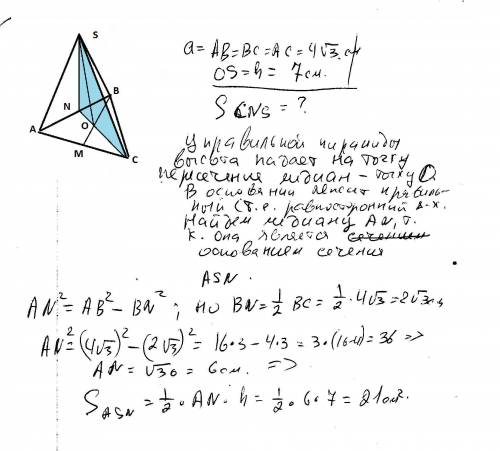 S
B
N
O
A
M
C
a = AB = BC = AC = 4√3 см
OS = h = 7 см.
S CNS = ?
У правильной пирамиды
высота падает на точку
пересечения медиан – точку O.
В основании лежит правиль-
ный (т.е. равносторонний
Найдем медиану AN, т.
к. она является сечением
основанием сечения
ASN.
AN² = AB² - BN² ; но BN = 1/2 BC = 1/2 · 4√3 = 2√3
AN² = (4√3)² - (2√3)² = 16·3 - 4·3 = 3·(16-4) = 36 =>
AN = √36 = 6 см. =>
S ASN = 1/2 · AN · h = 1/2 · 6 · 7 = 21 см².